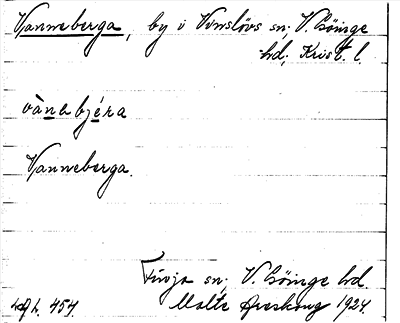 Vanneberga, by i Vinslövs sn; V. Göinge
hd; Krist. l.
vànabjéra
Vanneberga.
Finja sn; V. Göinge hd.
Malte Areskoug 1924.
454.